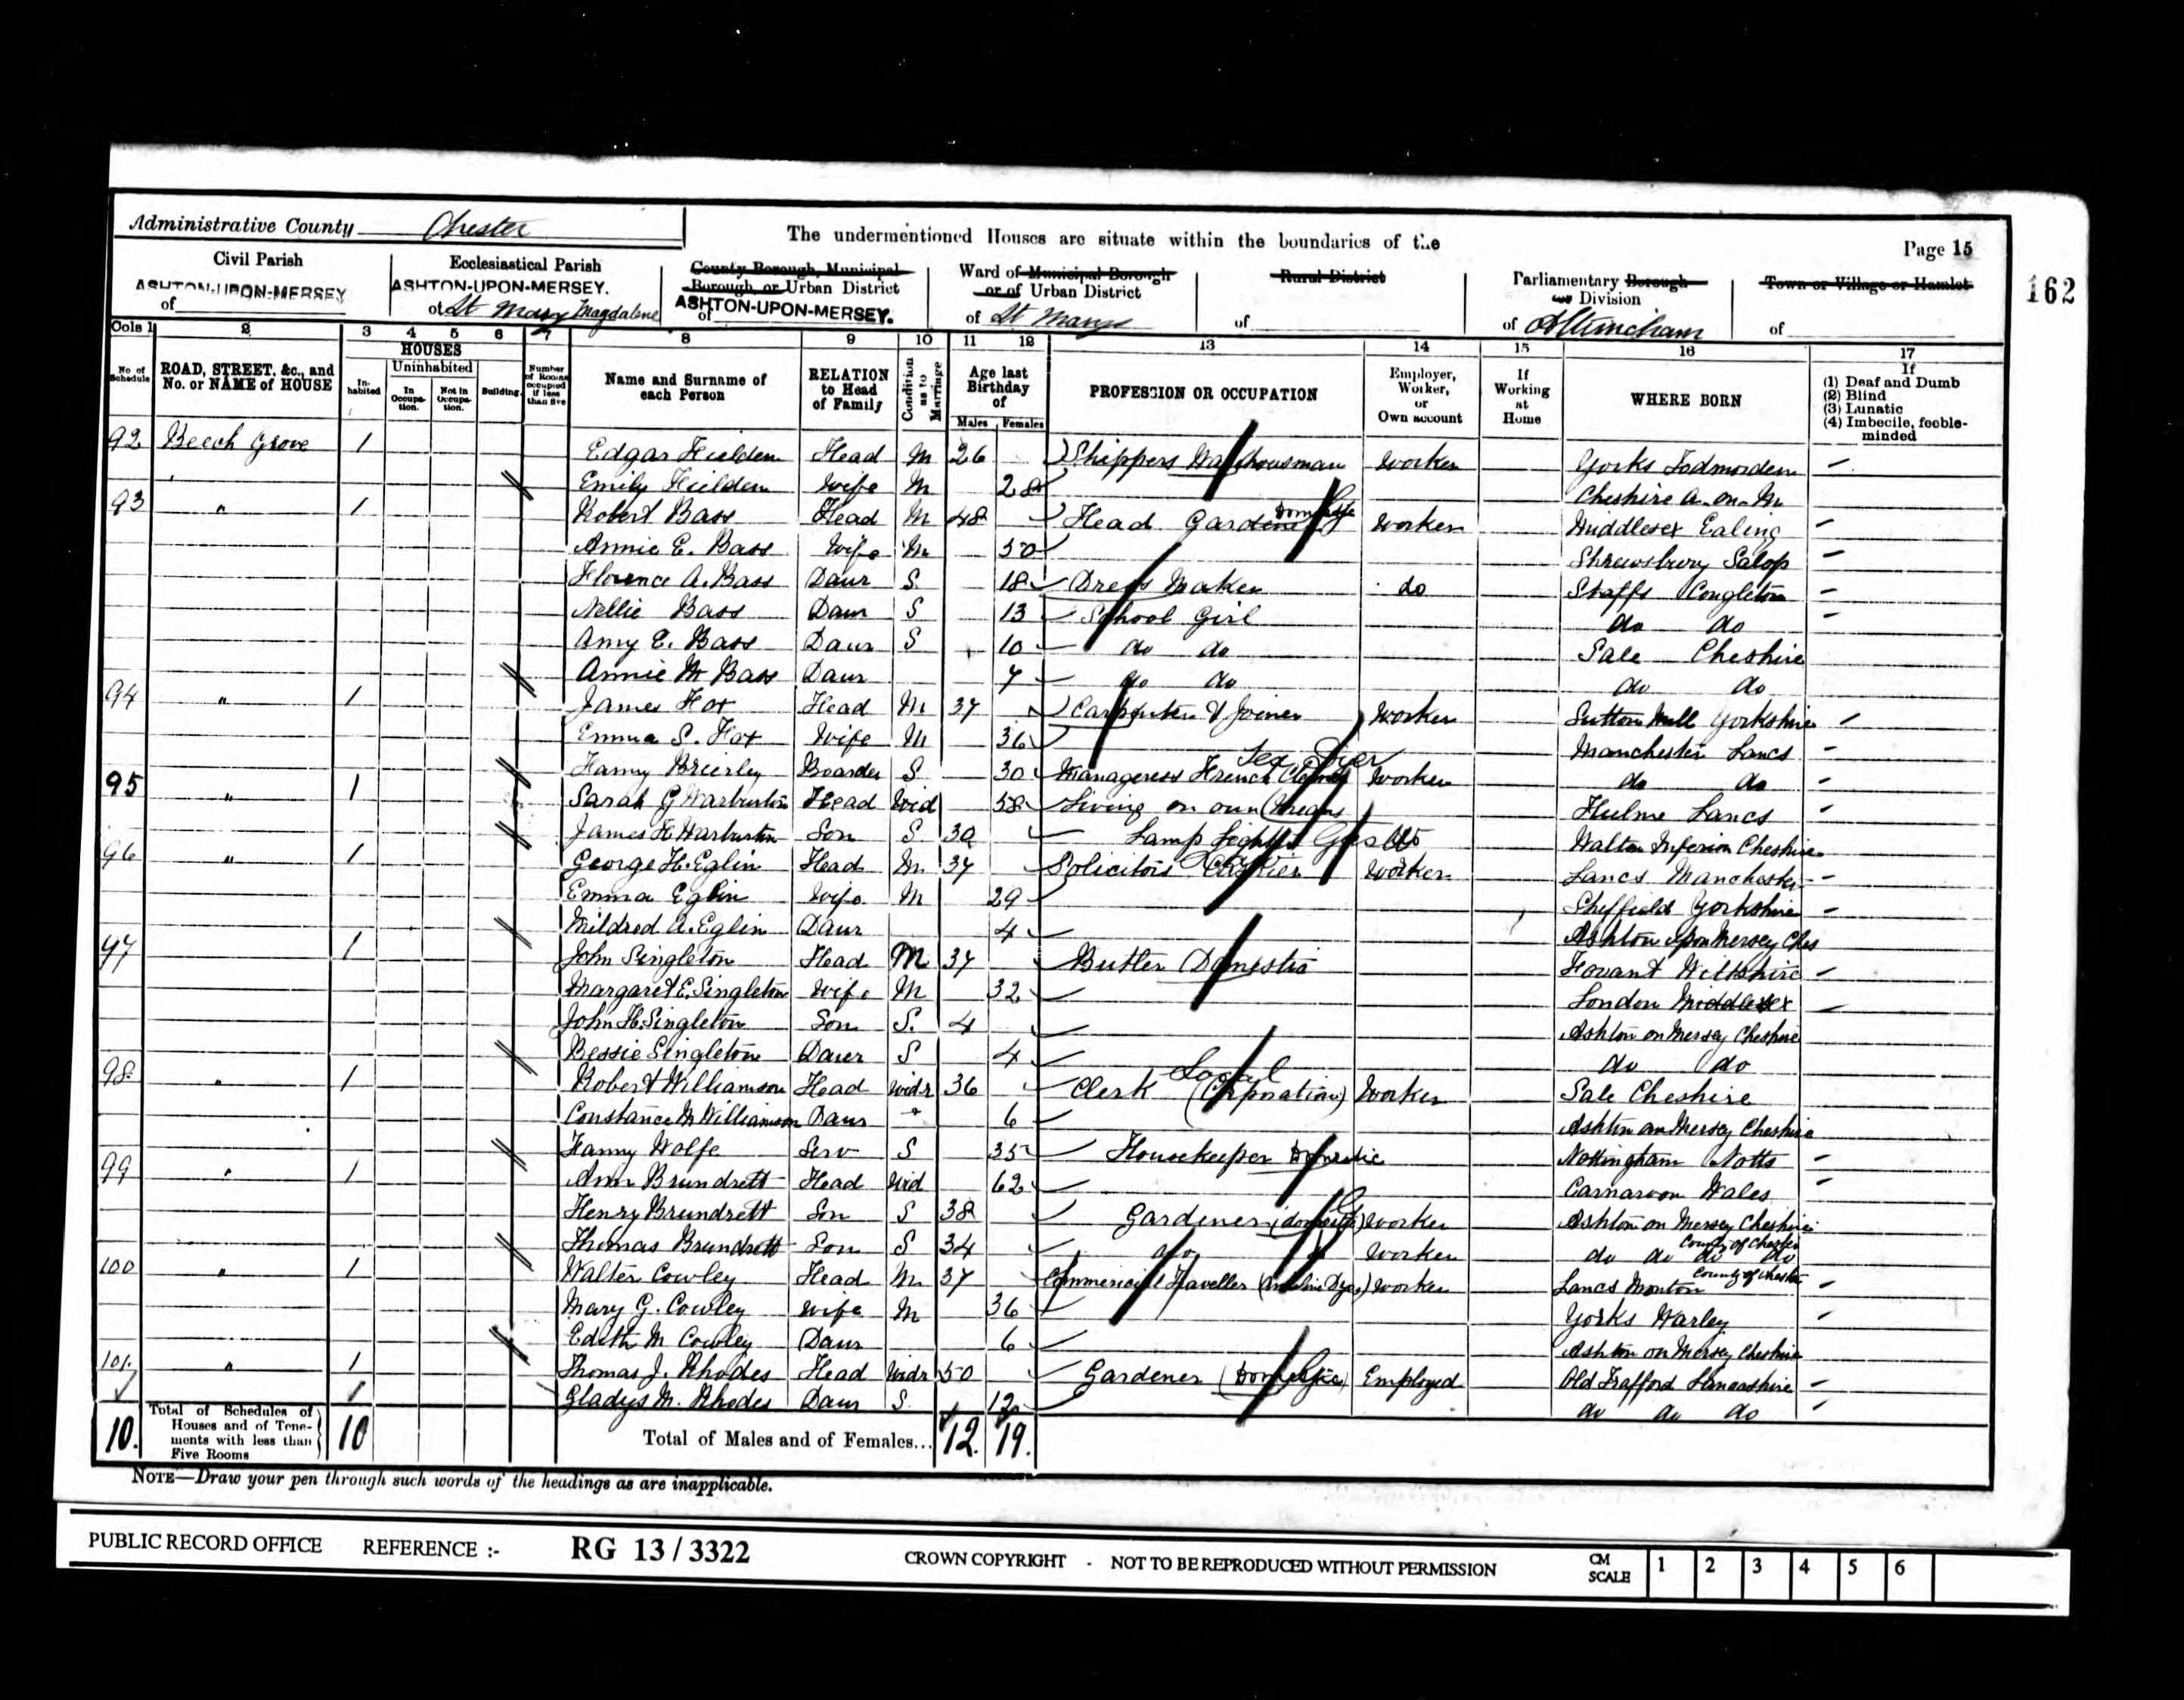 Administrative County Chester
The undermentioned Houses are situate within the boundaries of the
Page 15
162
Civil Parish of ASHTON-UPON-MERSEY
Ecclesiastical Parish of ASHTON-UPON-MERSEY. St Mary Magdalene
County Borough, Municipal Borough or Urban District of ASHTON-UPON-MERSEY.
Ward of Municipal Borough or of Urban District of St Marys
Rural District of
Parliamentary Borough or Division of Altrincham
Town or Village or Hamlet of
Cols 1 2 3 4 5 6 7 8 9 10 11 12 13 14 15 16 17
No. of Schedule
ROAD, STREET, &c., and No. or NAME of HOUSE
HOUSES
Inhabited
Uninhabited
In Occupation.
Not in Occupation.
Building.
Number of Rooms occupied if less than five
Name and Surname of each Person
RELATION to Head of Family
Condition as to Marriage
Age last Birthday of
Males Females
PROFESSION OR OCCUPATION
Employer, Worker, or Own account
If Working at Home
WHERE BORN
If
(1) Deaf and Dumb
(2) Blind
(3) Lunatic
(4) Imbecile, feeble-minded
92 Beech Grove 1 Edgar Fielden Head M 26 Shippers Warehousman Worker Yorks Todmorden
Emily Fielden Wife M 28 Cheshire A-on-M
93 " 1 Robert Bass Head M 48 Head Gardener Domestic Worker Middlesex Ealing
Annie E. Bass Wife M 50 Shrewsbury Salop
Florence A. Bass Daur S 18 Dress Maker do Staffs Congleton
Nellie Bass Daur S 13 School Girl do do
Amy E. Bass Daur S 10 do do Sale Cheshire
Annie M Bass Daur 7 do do do do
94 " 1 James Fox Head M 37 Carpenter & Joiner Worker Sutton Mill Yorkshire
Emma S. Fox Wife M 36 Manchester Lancs
Fanny Brierley Boarder S 30 Manageress French Cleaning Worker do do
95 " 1 Sarah G Warburton Head Wid 58 Living on own Means Hulme Lancs
James H Warburton Son S 30 Lamp Lighter Gas Walton Inferior Cheshire
96 " 1 George H. Eglin Head M 37 Solicitors Worker Lancs Manchester
Emma Eglin Wife M 29 Sheffield Yorkshire
Mildred A. Eglin Daur 4 Ashton upon Mersey Ches
97 1 John Singleton Head M 37 Butler Domestic Fovant Wiltshire
Margaret E. Singleton Wife M 32 London Middlesex
John H. Singleton Son S. 4 Ashton on Mersey Cheshire
Bessie Singleton Dauer S 4 do do
98 " 1 Robert Williamson Head Widr 36 Clerk (Corporation) Local Worker Sale Cheshire
Constance M Williamson Daur " 6 Ashton on Mersey Cheshire
Fanny Wolfe Serv S 35 Housekeeper Domestic Nottingham Notts
99 " 1 Ann Brundrett Head Wid 62 Carnarvon Wales
Henry Brundrett Son S 38 Gardener (domestic) Worker Ashton on Mersey Cheshire
Thomas Brundrett Son S 34 do Worker do do do do County of Chester
100 " 1 Walter Cowley Head M 37 Commercial Traveller (Aniline Dyes) Worker Lancs Monton County of Chester
Mary G. Cowley Wife M 36 Yorks Warley
Edith M Cowley Daur 6 Ashton on Mersey Cheshire
101 " 1 Thomas J. Rhodes Head Widr 50 Gardener (Domestic) Employed Old Trafford Lancashire
Gladys M. Rhodes Daur S 12 do do do
10. Total of Schedules of Houses and of Tenements with less than Five Rooms 10 Total of Males and of Females... 12. 19.
NOTE—Draw your pen through such words of the headings as are inapplicable.
PUBLIC RECORD OFFICE REFERENCE :- RG 13 / 3322 CROWN COPYRIGHT - NOT TO BE REPRODUCED WITHOUT PERMISSION CM SCALE 1 2 3 4 5 6